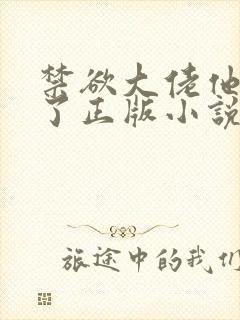 禁欲大佬他
了正版小説
旅途中的我们